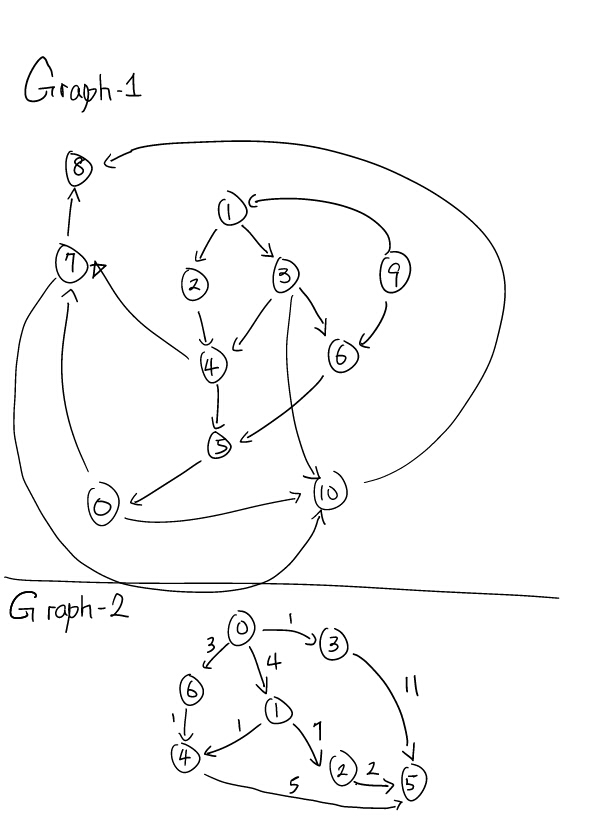 Graph-1
8
1
7
2
3
9
4
6
5
0
10
Graph-2
0
1
3
3
4
6
1
11
1
1
7
4
2
2
5
5